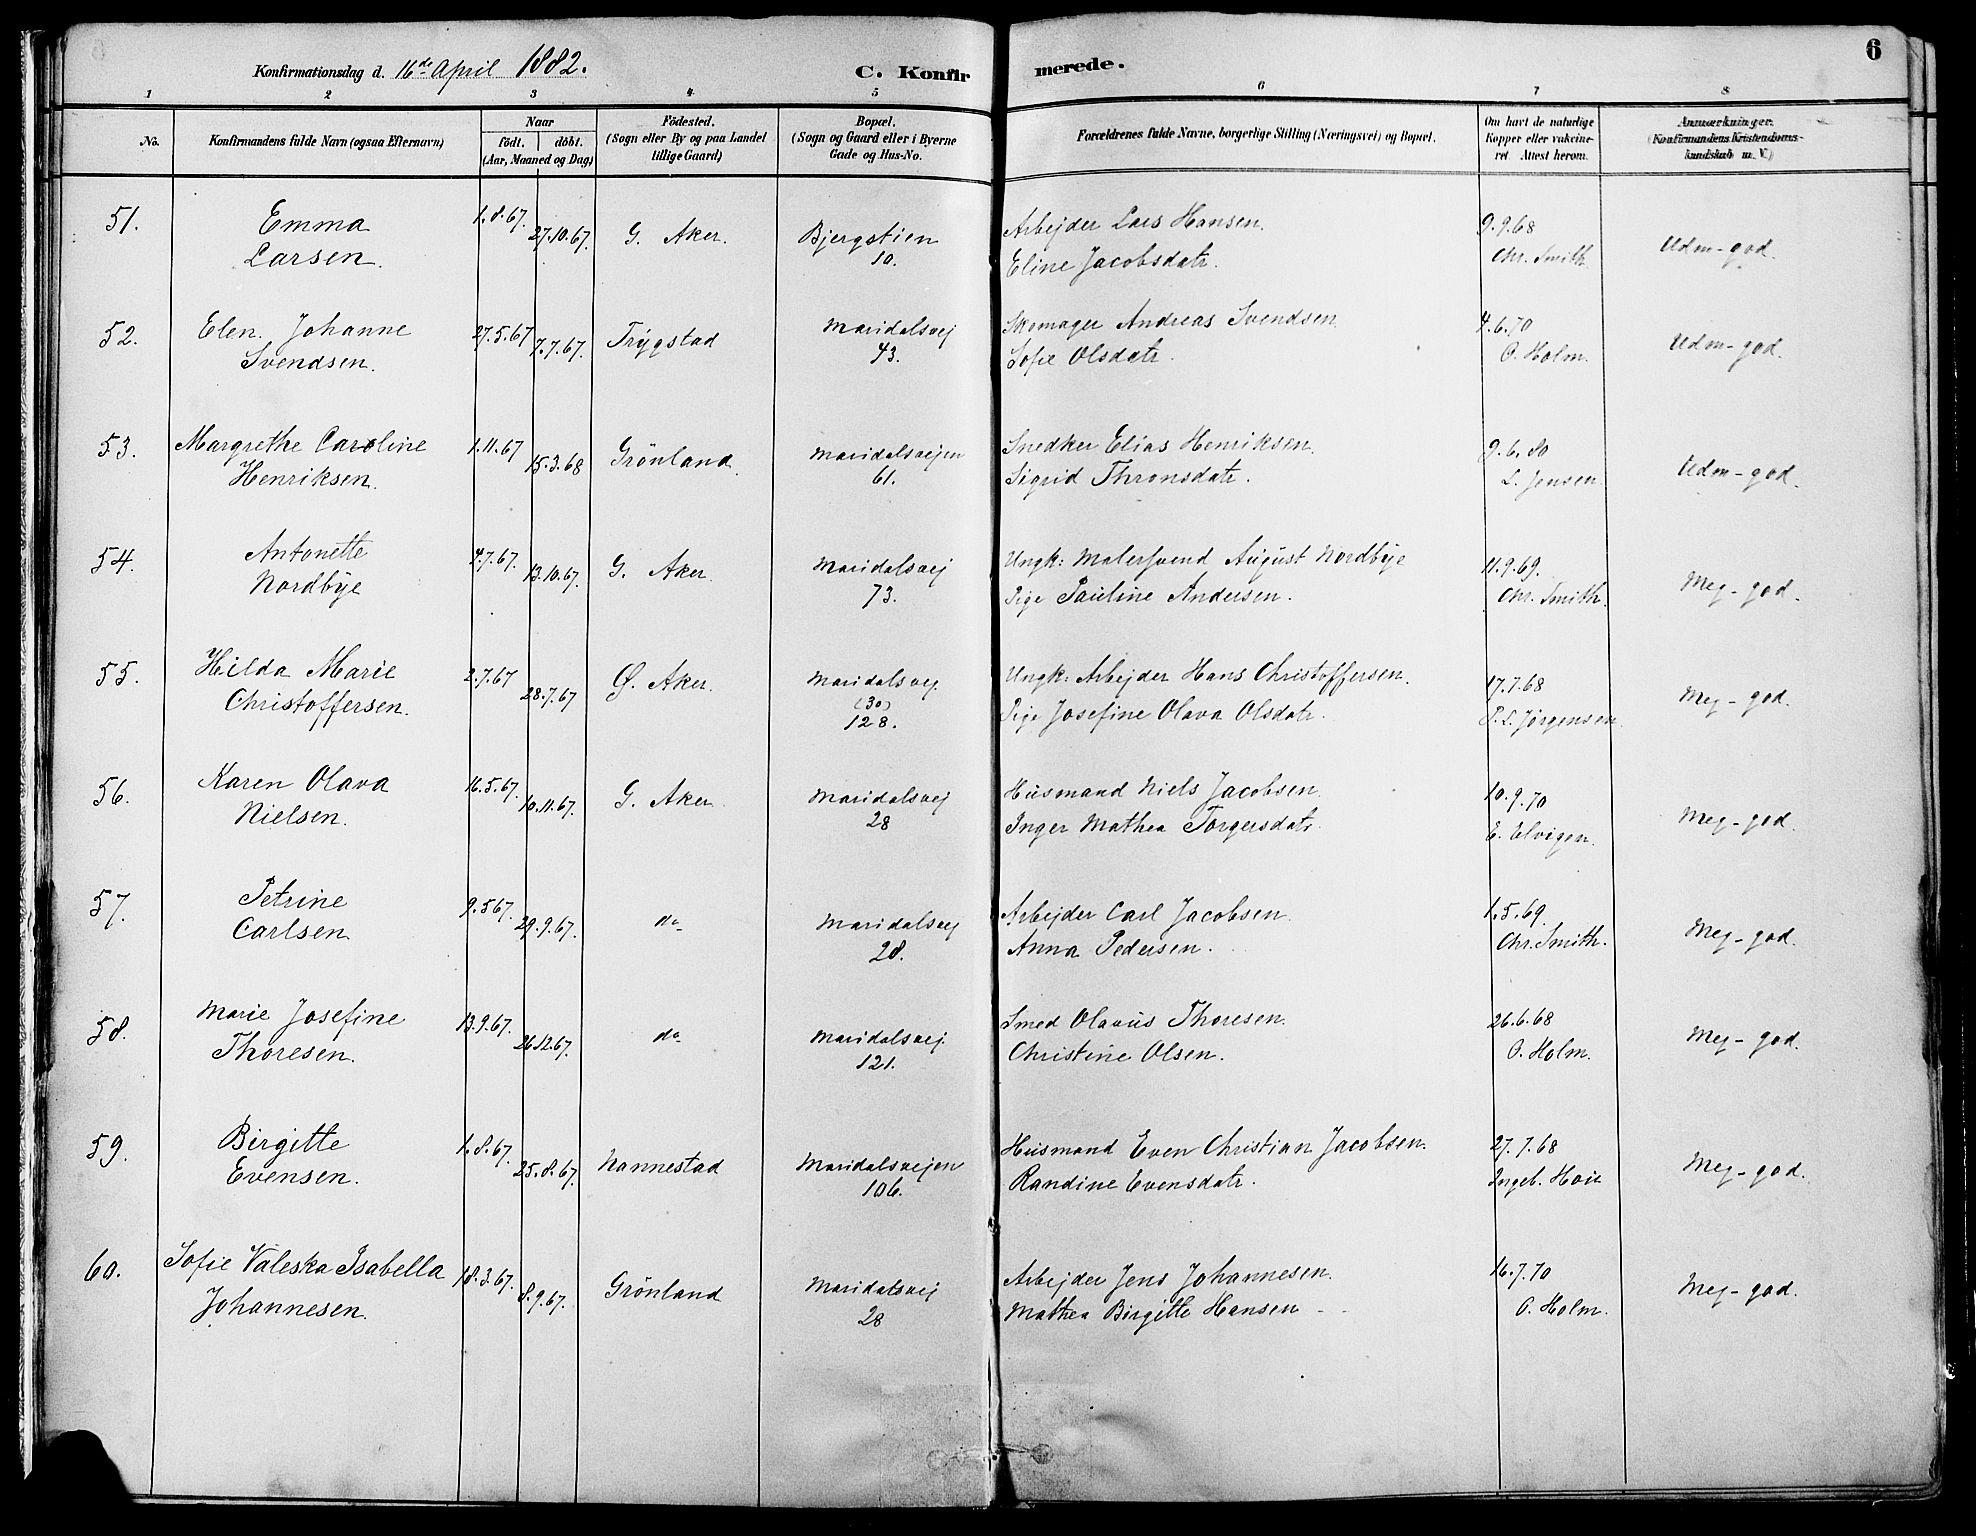 6
Konfirmationsdag d. 16de April 1882.
C. Konfirmerede.
1 2 3 4 5 6 7 8
No.
Konfirmandens fulde Navn (ogsaa Efternavn)
Naar
födt. döbt.
(Aar, Maaned og Dag)
Födested.
(Sogn eller By og paa Landet
tillige Gaard)
Bopæl.
(Sogn og Gaard eller i Byerne
Gade og Hus-No.
Forældrenes fulde Navne, borgerlige Stilling (Næringsvei) og Bopæl.
Om havt de naturlige
Kopper eller vakcine-
ret. Attest herom.
Anmærkninger.
(Konfirmandens Kristendoms-
kundskab m. V.)
51. Emma
Larsen.
1.8.67. 27.10.67. G. Aker.
Bjergstien
10.
Arbejder Lars Hansen.
Eline Jacobsdatr.
9.9.68
Chr. Smith
Udm-god.
52. Elen Johanne
Svendsen.
27.5.67 7.7.67. Trygstad
Maridalsvej
43.
Skomager Andreas Svendsen.
Sofie Olsdatr.
4.6.70
O. Holm.
Udm-god.
53. Margrethe Caroline
Henriksen.
1.11.67 15.3.68 Grönland.
Maridalsvejen
61.
Snedker Elias Henriksen.
Sigrid Thronsdatr.
9.6.80
L. Jensen
Udm-god.
54. Antonette
Nordbye
4.7.67. 13.10.67. G. Aker.
Maridalsvej
73.
Ungk: Malersvend August Nordbye
Pige Pauline Andersen.
11.9.69.
Chr. Smith.
Meg-god.
55. Hilda Marie
Christoffersen.
2.7.67 28.7.67 Ø. Aker.
Maridalsvej
(30)
128.
Ungk: Arbejder Hans Christoffersen.
Pige Josefine Olava Olsdatr.
17.7.68
P. L. Jørgensen
Meg-god.
56. Karen Olava
Nielsen.
16.5.67. 10.11.67. G. Aker
Maridalsvej
28
Husmand Niels Jacobsen
Inger Mathea Torgersdatr.
10.9.70
E. Elvigen.
Meg-god.
57. Petrine
Carlsen
9.5.67. 29.9.67. do
Maridalsvej
28.
Arbejder Carl Jacobsen.
Anna Pedersen.
1.5.69.
Chr. Smith.
Meg-god.
58. Marie Josefine
Thoresen.
13.9.67. 26.12.67. do
Maridalsvej
121.
Smed Olavus Thoresen.
Christine Olsen.
26.6.68
O. Holm.
Meg-god.
59. Birgitte
Evensen.
1.8.67. 25.8.67. Nannestad
Maridalsvejen
106.
Husmand Even Christian Jacobsen.
Randine Evensdatr.
27.7.68
Ingeb. Hoie
Meg-god.
60. Sofie Valeska Isabella
Johannesen.
18.3.67. 8.9.67. Grönland
Maridalsvej
28
Arbejder Jens Johannesen.
Mathea Birgitte Hansen
16.7.70
O. Holm.
Meg-god.